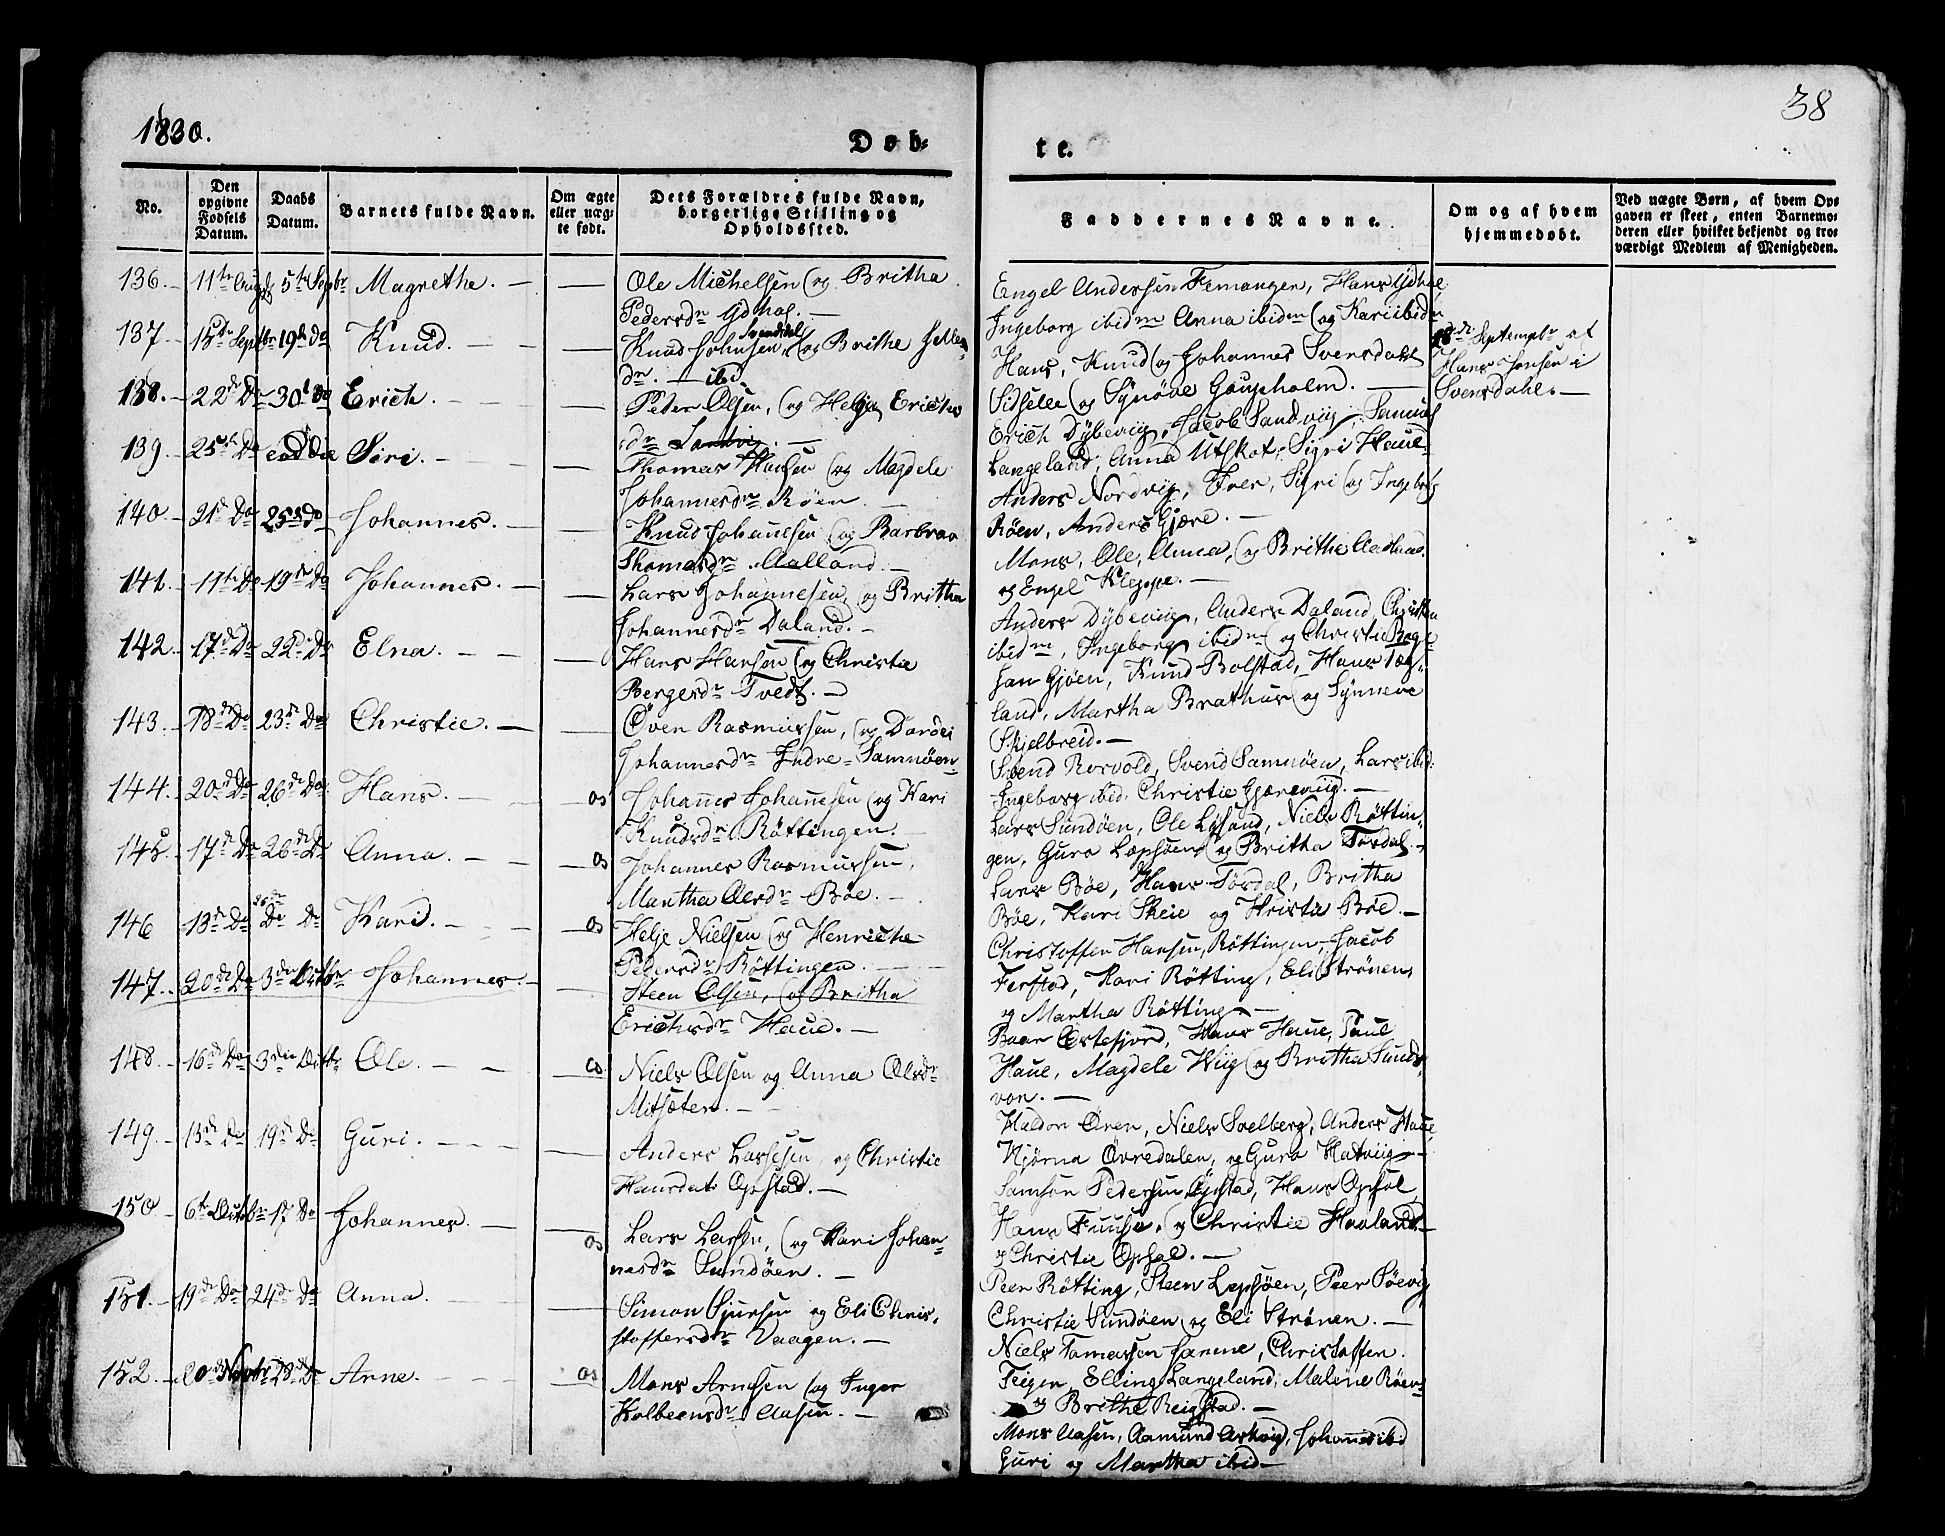 1830.
38
Døb-
te.
No.
Den opgivne Fødsels Datum.
Daabs Datum.
Barnets fulde Navn.
Om ægte eller uægte født.
Dets Forældres fulde Navn, borgerlige Stilling og Opholdssted.
Faddernes Navne.
Om og af hvem hjemmedøbt.
Ved uægte Børn, af hvem Opgaven er skeet, enten Barnemoderen eller hvilket bekjendt og troværdigt Medlem af Menigheden.
136. 11te Aug 5te Septbr Magrethe. Ole Michelsen og Britha
Pedersdr Ydhal.
Engel Andersen Femangen, Hans Ydhal
Ingeborg ibidm Anna ibidm og Kari ibidm
137. 15de Septbr 19de Do Knud. Knud Johnsen Svendsdal og Brithe
dr. ibd.
Hans, Knud og Johannes Svensdahl
Sidselle og Synøve Gaupholm.
18de Septembr af
Hans Jensen i
Svensdahl.
138. 22de Do 30te Do Erich. Peter Olsen, og Helga Erichs
dr Sandvig.
Erich Dybevig, Jacob Sandviig, Samuel
Langeland, Anna Utskot, Sigri Haue
139. 25de Do eod die Siri. Thomas Hansen og Magdele
Johannesdr Røen.
Anders Nordvig, Iver, Sigri og Ingeborg
Røen, Anders Gjære.
140. 21de Do 25de Do Johannes. Knud Johannesen og Barbroe
Thomasdr Aalland.
Mons, Ole, Anna, og Brithe Aaland
og Engel Kleppe.
141. 17de Do 19de Do Johannes. Lars Johannesen, og Britha
Johannesdr Daland.
Anders Dybevig, Anders Daland, Christen
ibidm, Ingeborg ibidm og Christi Bage
142. 17de Do 22de Do Elna. Hans Hansen og Christie
Bergesdr Tvedt.
Jan Gjøen, Knud Bolstad, Hans Tøg-
land, Martha Brathus og Synneve
Skjelbreid.
143. 18de Do 23de Do Christie. Öven Rasmussen, og Dordei
Johannesdr Indre-Samnøen
Svend Rorvold, Svend Samnøen, Lars ibid:
Ingeborg ibid. Christie Gjæreviig.
144. 20de Do 26de Do Hans. Os Johannes Johanesen og Kari
Knudsdr Røttingen.
Lars Sundøen, Ole Lysand, Niels Røttin-
gen, Guro Lepsøen og Britha Tørdal.
145. 17de Do 26de Do Anna. Os Johannes Rasmussen,
Martha Olsdr Bøe.
Lars Bøe, Hans Tørdal, Britha
Bøe, Kari Skeie og Kristie Bøe.
146 13de Do 26de Do Do Kari. Os Helje Nielsen og Henriche
Pedersdr Røttingen.
Christoffen Hansen, Røttingen, Jacob
Ferstad, Kari Røtting, Eli Strønen,
og Martha Røtting
147. 20de Do 3de Octbr Johannes. Steen Olsen, og Britha
Erichsdr Haue.
Baar Østefjord, Hans Haue, Paul
Haue, Magdele Wiig og Britha Sunds
von.
148. 16de Do 3die Octbr Ole. Os Niels Olsen og Anna Olsdr
Mitsæter.
Haldor Øren, Niels Solberg, Anders Haue,
Njørna Øvredalen, og Guro Hatviig
149. 13de Do 19de Do Guri. Anders Larsesen og Christie
Hansdatr Opstad.
Samson Pedersen Opstad, Hans Opsal
Hans Fuuse, og Christie Haaland
og Christie Opsal.
150. 6te Octobr 17 Do Johannes. Os Lars Larsen, og Kari Johan-
nesdr Sundøen.
Peer Røtting, Steen Lepsøen, Peer Søevig
Christie Sundøen og Eli Strønen.
151. 19de Do 24de Do Anna. Simon Sjursen og Eli Chris-
stoffersdr Vaagen.
Niels Tomassen Hanne, Christoffen
Teigen, Elling Langeland, Malene Røen
og Brithe Reigstad.
152. 20de Novbr 28de Do Arne. Os Mons Arnesen og Inger
Kolbeensdr Aasen.
Mons Aasen, Aamund Askvig, Johannes ibd
Guri og Martha ibid